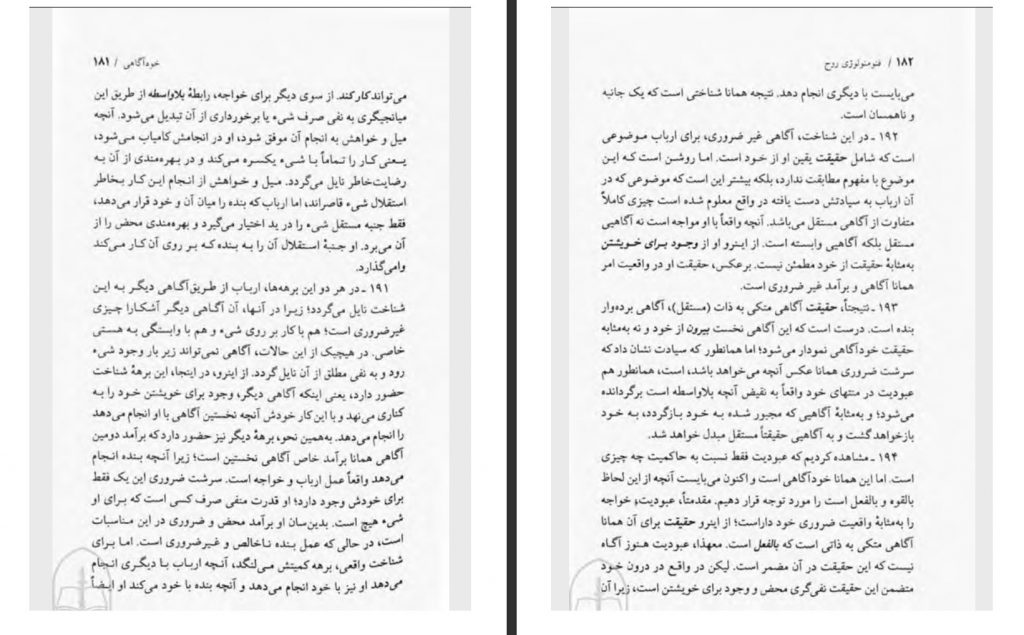 خودآگاهی / ۱۸۱
می‌تواند کار کند. از سوی دیگر برای خواجه، رابطهٔ بلاواسطه از طریق این
میانجیگری به نفی صرف شیء یا برخورداری از آن تبدیل می‌شود. آنچه
میل و خواهش به انجام آن موفق شود، او در انجامش کامیاب می‌شود،
یعنی کار را تماماً با شیء یکسره می‌کند و در بهره‌مندی از آن به
رضایت‌خاطر نایل می‌گردد. میل و خواهش از انجام این کار بخاطر
استقلال شیء قاصراند، اما ارباب که بنده را میان آن و خود قرار می‌دهد،
فقط جنبه مستقل شیء را در ید اختیار می‌گیرد و بهره‌مندی محض را از
آن می‌برد. او جنبهٔ استقلال آن را به بنده که بر روی آن کار می‌کند
وامی‌گذارد.
۱۹۱ ـ در هر دو این برهه‌ها، ارباب از طریق آگاهی دیگر به این
شناخت نایل می‌گردد؛ زیرا در آنها، آن آگاهی دیگر آشکارا چیزی
غیرضروری است؛ هم با کار بر روی شیء و هم با وابستگی به هستی
خاصی. در هیچیک از این حالات، آگاهی نمی‌تواند زیر بار وجود شیء
رود و به نفی مطلق از آن نایل گردد. از اینرو، در اینجا، این برههٔ شناخت
حضور دارد، یعنی اینکه آگاهی دیگر، وجود برای خویشتن خود را به
کناری می‌نهد و با این کار خودش آنچه نخستین آگاهی با او انجام می‌دهد
را انجام می‌دهد. به‌همین نحو، برههٔ دیگر نیز حضور دارد که برآمد دومین
آگاهی همانا برآمد خاص آگاهی نخستین است؛ زیرا آنچه بنده انجام
می‌دهد واقعاً عمل ارباب و خواجه است. سرشت ضروری این یک فقط
برای خودش وجود دارد؛ او قدرت منفی صرف کسی است که برای او
شیء هیچ است. بدین‌سان او برآمد محض و ضروری در این مناسبات
است، در حالی که عمل بنده ناخالص و غیرضروری است. اما برای
شناخت واقعی، برهه کمیتش می‌لنگد، آنچه ارباب با دیگری انجام
می‌دهد او نیز با خود انجام می‌دهد و آنچه بنده با خود می‌کند او ایضاً
۱۸۲ / فنومنولوژی روح
می‌بایست با دیگری انجام دهد. نتیجه همانا شناختی است که یک جانبه
و ناهمسان است.
۱۹۲ ـ در این شناخت، آگاهی غیر ضروری، برای ارباب موضوعی
است که شامل حقیقت یقین او از خود است. اما روشن است که این
موضوع با مفهوم مطابقت ندارد، بلکه بیشتر این است که موضوعی که در
آن ارباب به سیادتش دست یافته در واقع معلوم شده است چیزی کاملاً
متفاوت از آگاهی مستقل می‌باشد. آنچه واقعاً با او مواجه است نه آگاهیی
مستقل بلکه آگاهیی وابسته است. از اینرو او از وجود برای خویشتن
به‌مثابهٔ حقیقت از خود مطمئن نیست. برعکس، حقیقت او در واقعیت امر
همانا آگاهی و برآمد غیر ضروری است.
۱۹۳ ـ نتیجتاً، حقیقت آگاهی متکی به ذات (مستقل)، آگاهی برده‌وار
بنده است. درست است که این آگاهی نخست بیرون از خود و نه به‌مثابه
حقیقت خودآگاهی نمودار می‌شود؛ اما همانطور که سیادت نشان داد که
سرشت ضروری همانا عکس آنچه می‌خواهد باشد، است، همانطور هم
عبودیت در منتهای خود واقعاً به نقیض آنچه بلاواسطه است برگردانده
می‌شود؛ و به‌مثابهٔ آگاهیی که مجبور شده به خود بازگردد، به خود
بازخواهد گشت و به آگاهیی حقیقتاً مستقل مبدل خواهد شد.
۱۹۴ ـ مشاهده کردیم که عبودیت فقط نسبت به حاکمیت چه چیزی
است. اما این همانا خودآگاهی است و اکنون می‌بایست آنچه از این لحاظ
بالقوه و بالفعل است را مورد توجه قرار دهیم. مقدمتاً، عبودیت، خواجه
را به‌مثابهٔ واقعیت ضروری خود داراست؛ از اینرو حقیقت برای آن همانا
آگاهی متکی به ذاتی است که بالفعل است. معهذا، عبودیت هنوز آگاه
نیست که این حقیقت در آن مضمر است. لیکن در واقع در درون خود
متضمن این حقیقت نفی‌گری محض و وجود برای خویشتن است، زیرا آن